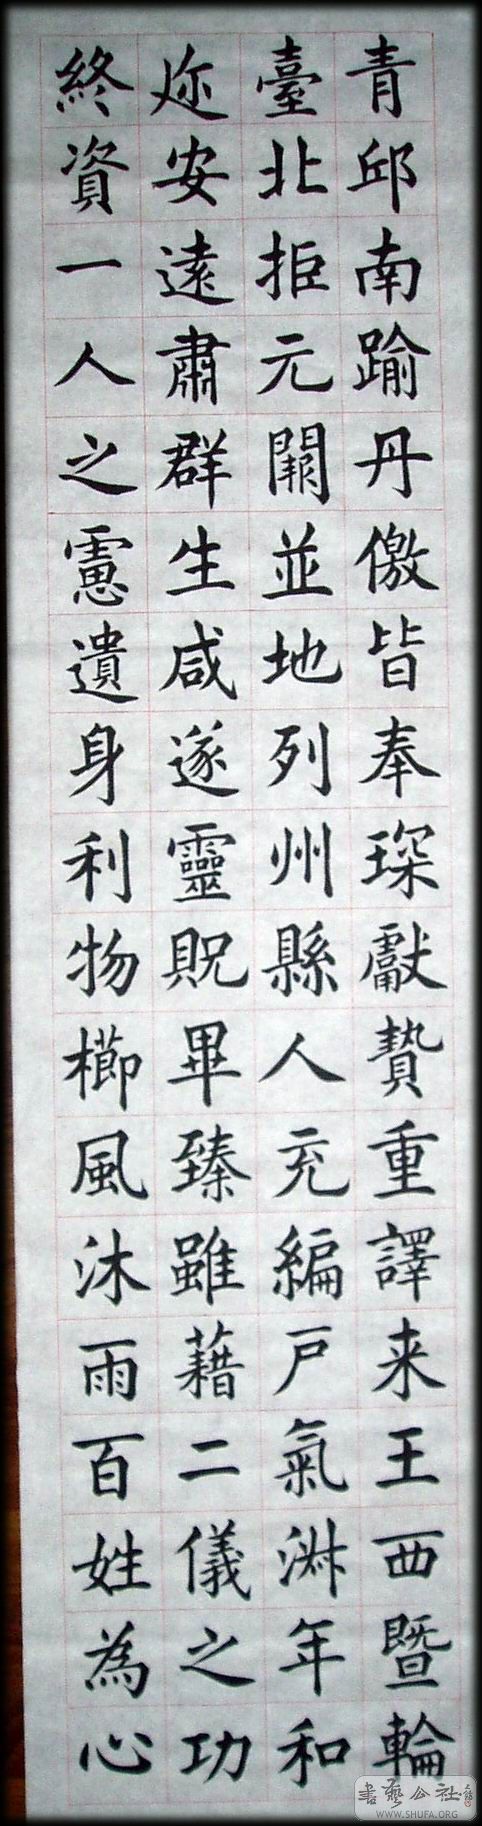 青邱南踰丹儌皆奉琛獻贄重譯来王西暨輪
臺北拒元闕並地列州縣人充編戸氣淋年和
迩安遠肅群生咸遂靈貺畢臻雖藉二儀之功
終資一人之慮遺身利物櫛風沐雨百姓為心
書藝公社
WWW.SHUFA.ORG